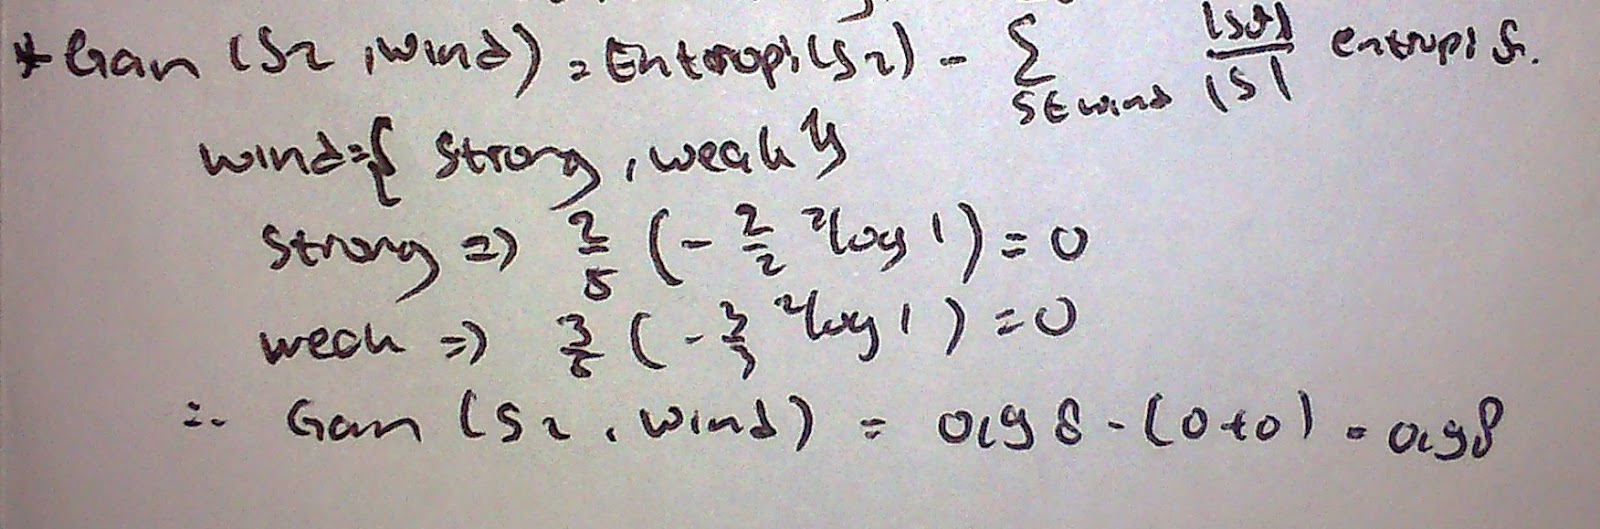 * Gain (S2, wind) = Entropi(S2) - Σ S∈wind |Sv|/|S| entropi S.
wind = { Strong, weak }
Strong => 2/5 (- 2/2 ²log 1) = 0
weak => 3/5 (- 3/3 ²log 1) = 0
∴ Gain (S2, wind) = 0,98 - (0+0) = 0,98